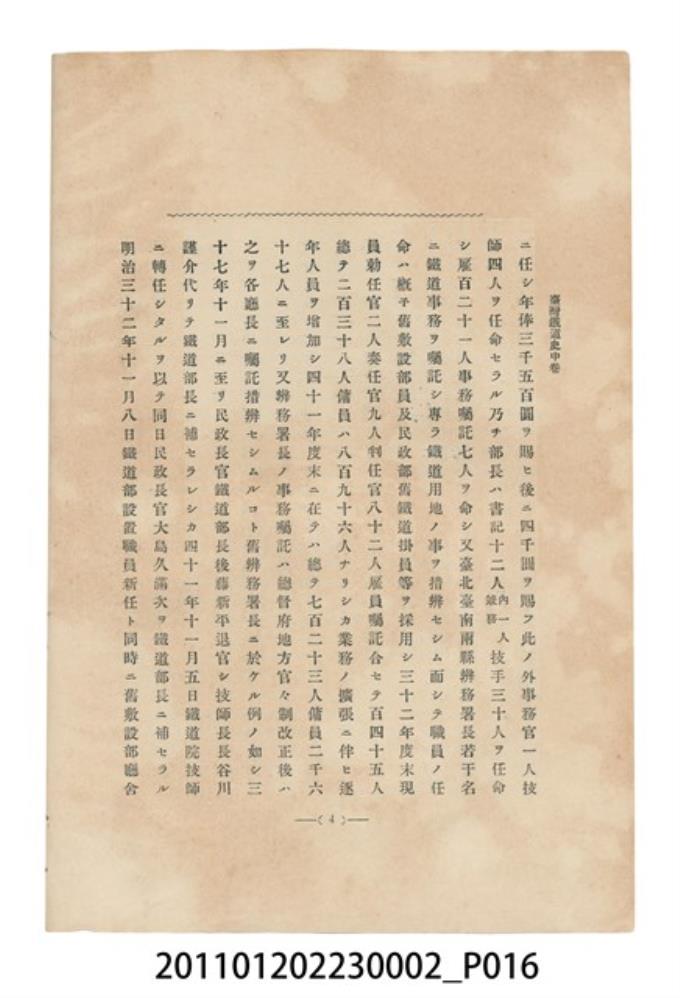 臺灣鐵道史中卷
ニ任シ年俸三千五百圓ヲ賜ヒ後ニ四千圓ヲ賜フ此ノ外事務官一人技
師四人ヲ任命セラル乃チ部長ハ書記十二人內一人兼務技手三十人ヲ任命
シ雇百二十一人事務囑託七人ヲ命シ又臺北臺南兩縣辨務署長若干名
ニ鐵道事務ヲ囑託シ專ラ鐵道用地ノ事ヲ措辨セシム而シテ職員ノ任
命ハ概子舊敷設部員及民政部舊鐵道掛員等ヲ採用シ三十二年度末現
員勅任官二人奏任官九人判任官八十二人雇員囑託合セテ百四十五人
總テ二百三十八人傭員ハ八百九十六人ナリシカ業務ノ擴張ニ伴ヒ逐
年人員ヲ增加シ四十一年度末ニ在テハ總テ七百二十三人傭員二千六
十七人ニ至レリ又辨務署長ノ事務囑託ハ總督府地方官々制改正後ハ
之ヲ各廳長ニ囑託措辨セシムルコト舊辨務署長ニ於ケル例ノ如シ三
十七年十一月ニ至リ民政長官鐵道部長後藤新平退官シ技師長長谷川
謹介代リテ鐵道部長ニ補セラレシカ四十一年十一月五日鐵道院技師
ニ轉任シタルヲ以テ同日民政長官大島久滿次ヲ鐵道部長ニ補セラル
明治三十二年十一月八日鐵道部設置職員新任ト同時ニ舊敷設部廳舍
—( 4 )—
201101202230002_P016